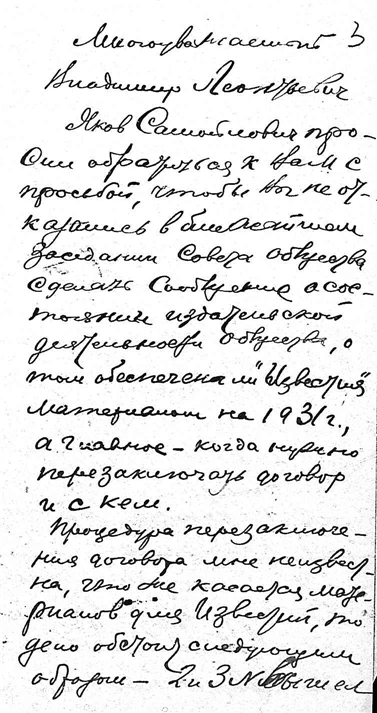 Многоуважаемый 3
Владимир Леонтьевич
Яков Самойлович про-
сил обратиться к Вам с
просьбой, чтобы Вы не от-
казались в ближайшем
заседании Совета общества
сделать сообщение о сос-
тоянии издательской
деятельности общества, о
том обеспечена ли "Известия"
материалом на 1931 г.,
а главное - когда нужно
перезаключать договор
и с кем.
Процедура перезаключе-
ния договора мне неизвест-
на, что же касается мате-
риалов для Известий, то
дело обстоит следующим
образом - 2 и 3 № вышел